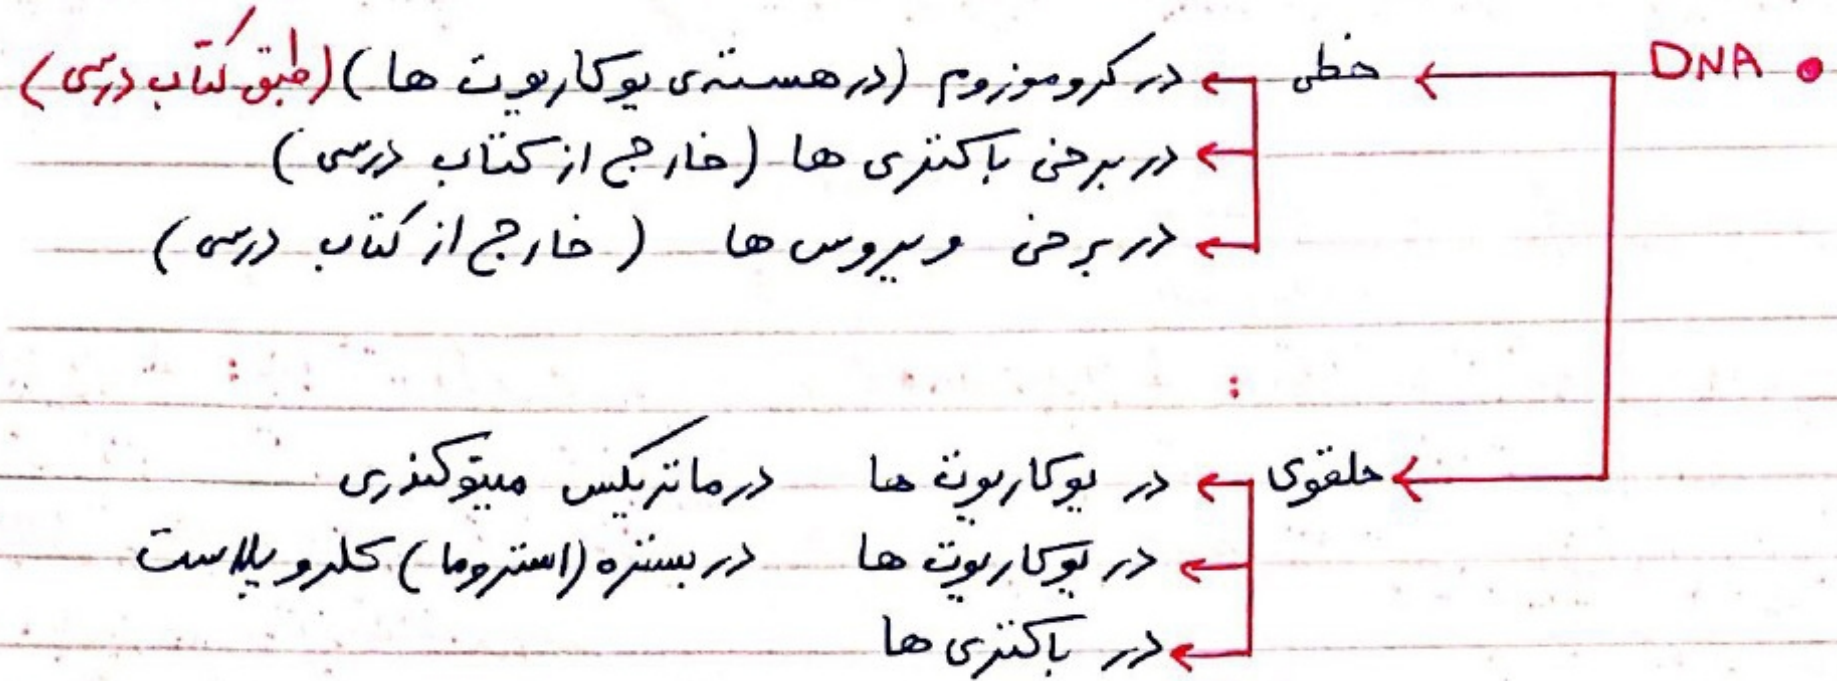 ● DNA ← خطی ← در کروموزوم (در هسته‌ی یوکاریوت ها) (طبق کتاب درسی)
← در برخی باکتری ها (خارج از کتاب درسی)
← در برخی ویروس ها (خارج از کتاب درسی)
← حلقوی ← در یوکاریوت ها در ماتریکس میتوکندری
← در یوکاریوت ها در بستره (استروما) کلروپلاست
← در باکتری ها